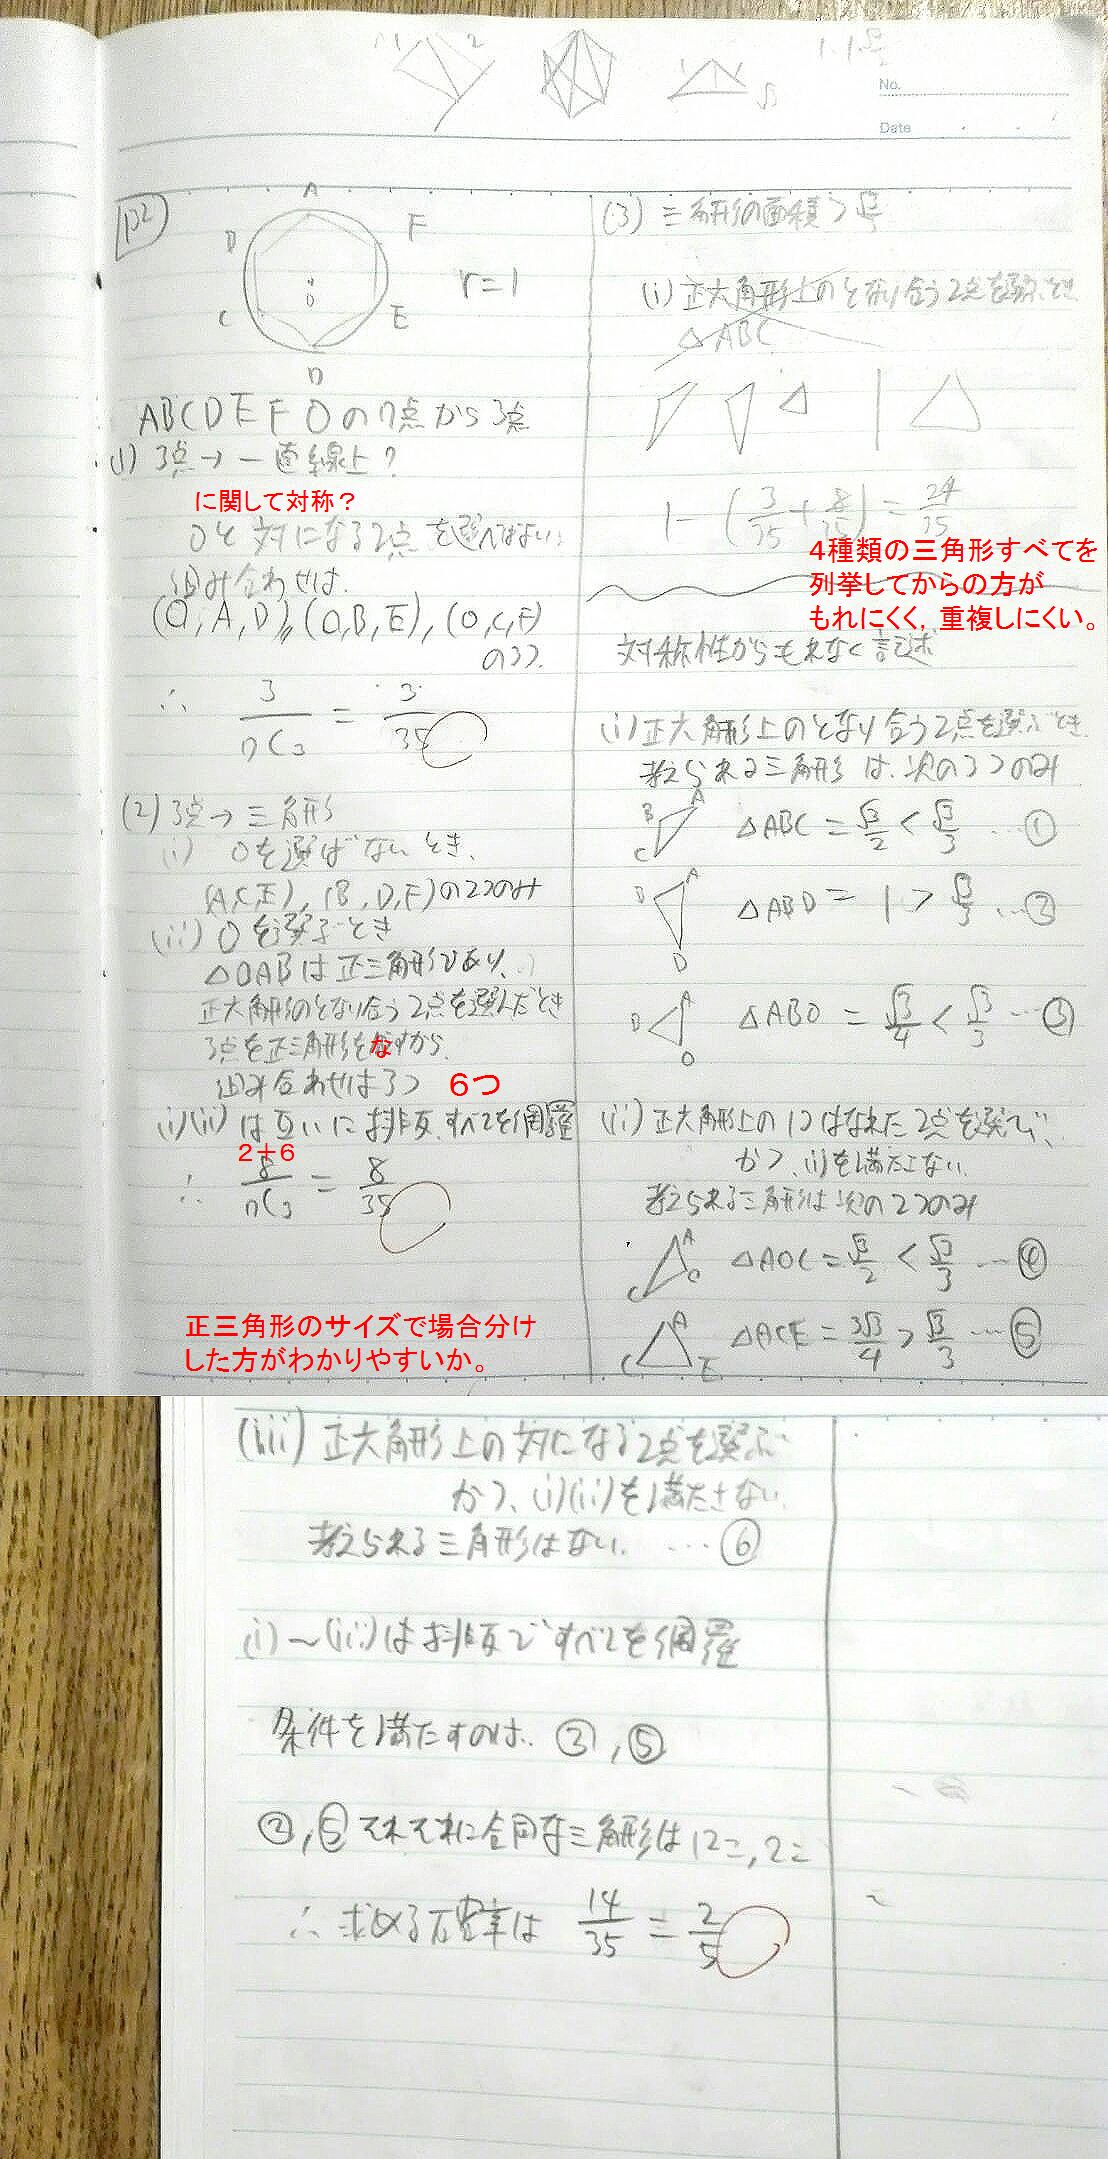 No.
Date
P2
A
F
B
r=1
O
C
E
D
ABCDEFOの7点から3点
(1) 3点→一直線上?
に関して対称？
Oと対になる2点を選べばよい
組み合わせは、
(O,A,D),(O,B,E),(O,C,F)
の3つ
∴ 3/7C3 = 3/35
(2) 3点→三角形
(i) Oを選ばないとき、
(A,C,E),(B,D,F)の2つのみ
(ii) Oを選ぶとき
△OABは正三角形であり、
正六角形のとなり合う2点を選んだとき
3点を正三角形をなすから、
組み合わせは3つ ６つ
(i)(ii)は互いに排反、すべてを網羅
２＋６
∴ 8/7C3 = 8/35
正三角形のサイズで場合分け
した方がわかりやすいか。
(3) 三角形の面積>
(i) 正六角形上のとなり合う2点を選ぶとき
△ABC
1-(3/35+8/35)=24/35
４種類の三角形すべてを
列挙してからの方が
もれにくく，重複しにくい。
対称性からもれなく記述
(i) 正六角形上のとなり合う2点を選ぶとき、
考えられる三角形は、次の3つのみ
B A C △ABC = √3/2 < √3/3 …①
B A D △ABD = 1 > √3/3 …②
B A O △ABO = √3/4 < √3/3 …③
(ii) 正六角形上の1つはなれた2点を選び、
かつ、(i)を満たさない
考えられる三角形は次の2つのみ
A C O △AOC = √3/2 < √3/3 …④
A C E △ACE = 3√3/4 > √3/3 …⑤
(iii) 正六角形上の対になる2点を選ぶ
かつ、(i)(ii)を満たさない
考えられる三角形はない。…⑥
(i)～(iii)は排反ですべてを網羅
条件を満たすのは、②,⑤
②,⑤それぞれに合同な三角形は12こ,2こ
∴ 求める確率は 14/35 = 2/5